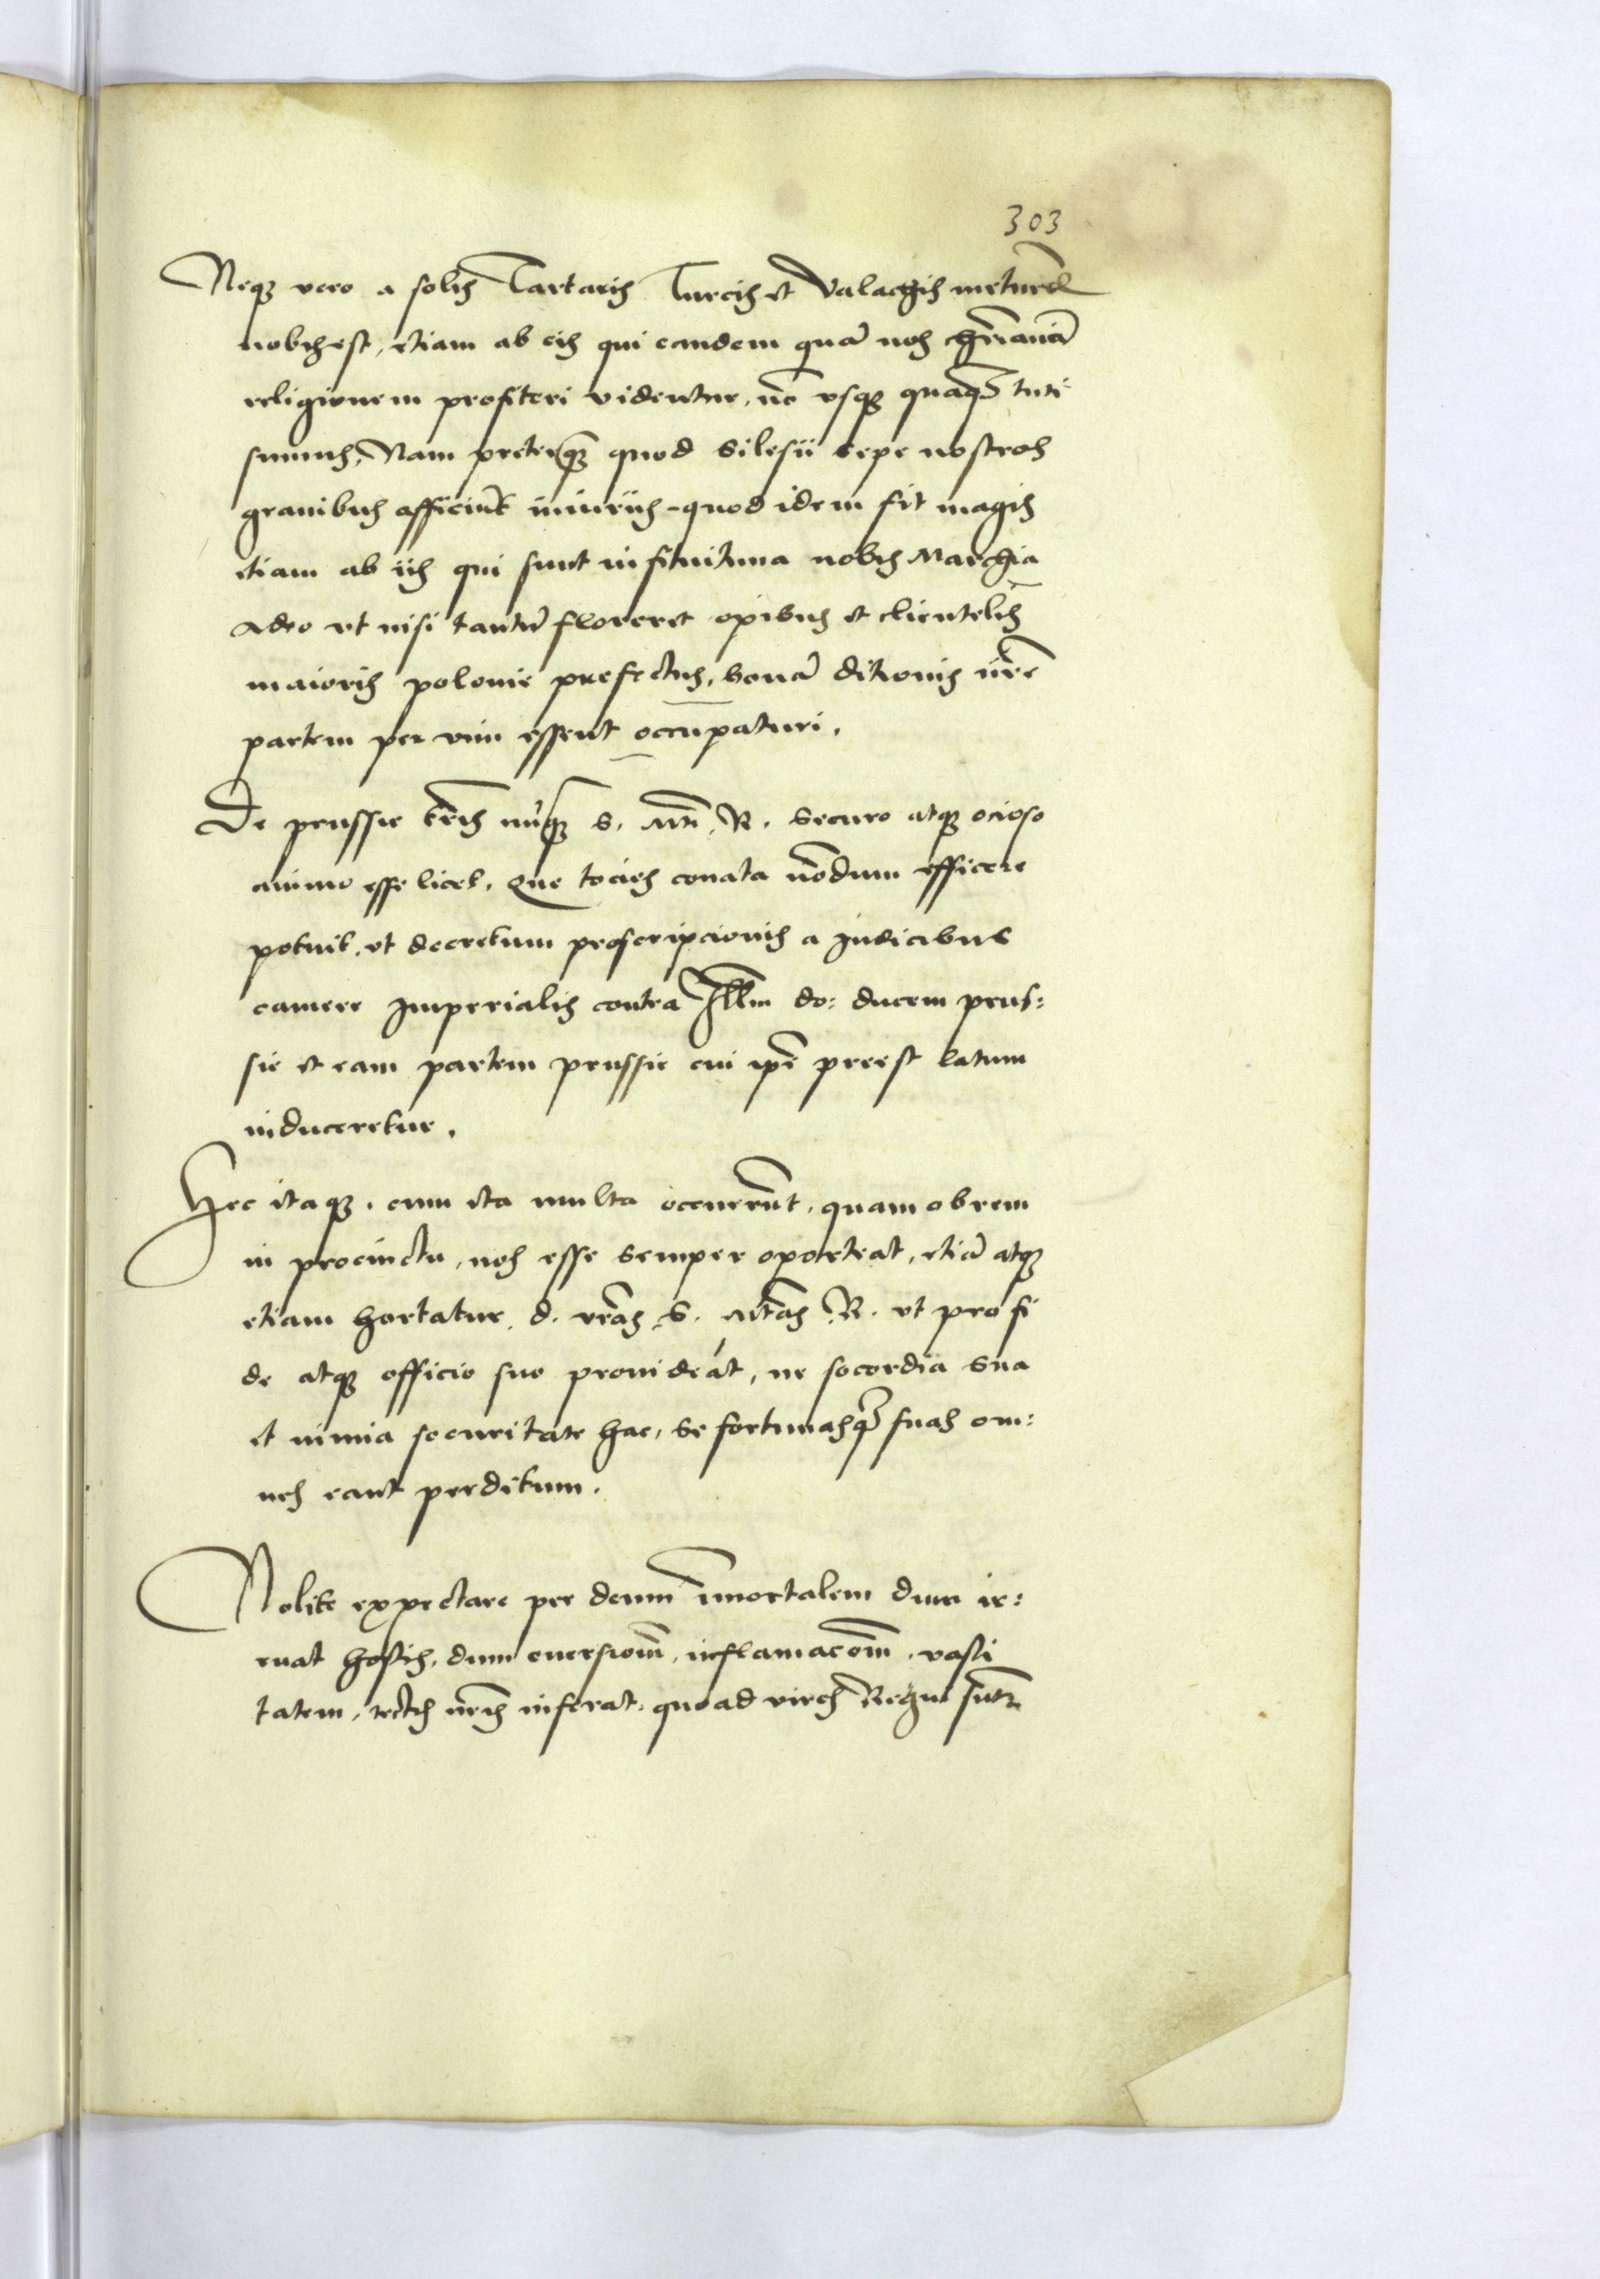 303
Neq3 vero a solis Tartaris Turcis et Valachis metuend
nobis est, etiam ab eis qui eandem quā nos chr̄ianā
religionem profiteri videntur, nō vsq3 quaq̄3 tuti
sumus, Nam preterq̄3 quod Silesii sepe nostros
grauibus afficiūt iniuriis quod idem fit magis
etiam ab iis qui sunt in finitima nobis Marchia
Adeo vt nisi tantū floreret opibus et clientelis
maioris polonie prefectus, bonā ditionis nr̄e
partem per vim essent occupaturi.
De prussie tr̄is nūq3 S. Mti R. securo atq3 ocioso
animo esse licet. Que tocies conata nōdum efficere
potuit, vt decretum proscripcionis a Judicibus
camere Imperialis contra Illm do: ducem prus:
sie et eam partem prussie cui ip̄e preest latum
induceretur.
Hec itaq3, cum ita multa occurrerūt, quamobrem
in procinctu, nos esse semper oporteat, etiā atq3
etiam hortatur. d. vr̄as S. Mtas R. vt pro fi
de atq3 officio suo prouideāt, ne socordia sua
et nimia securitate hac, se fortunasq3 suas om:
nes eant perditum.
Nolite expectare per deum īmortalem dum ir:
ruat hostis, dum euersionē, inflamacōm, vasti
tatem, tectis nr̄is inferat, quoad vires Regni